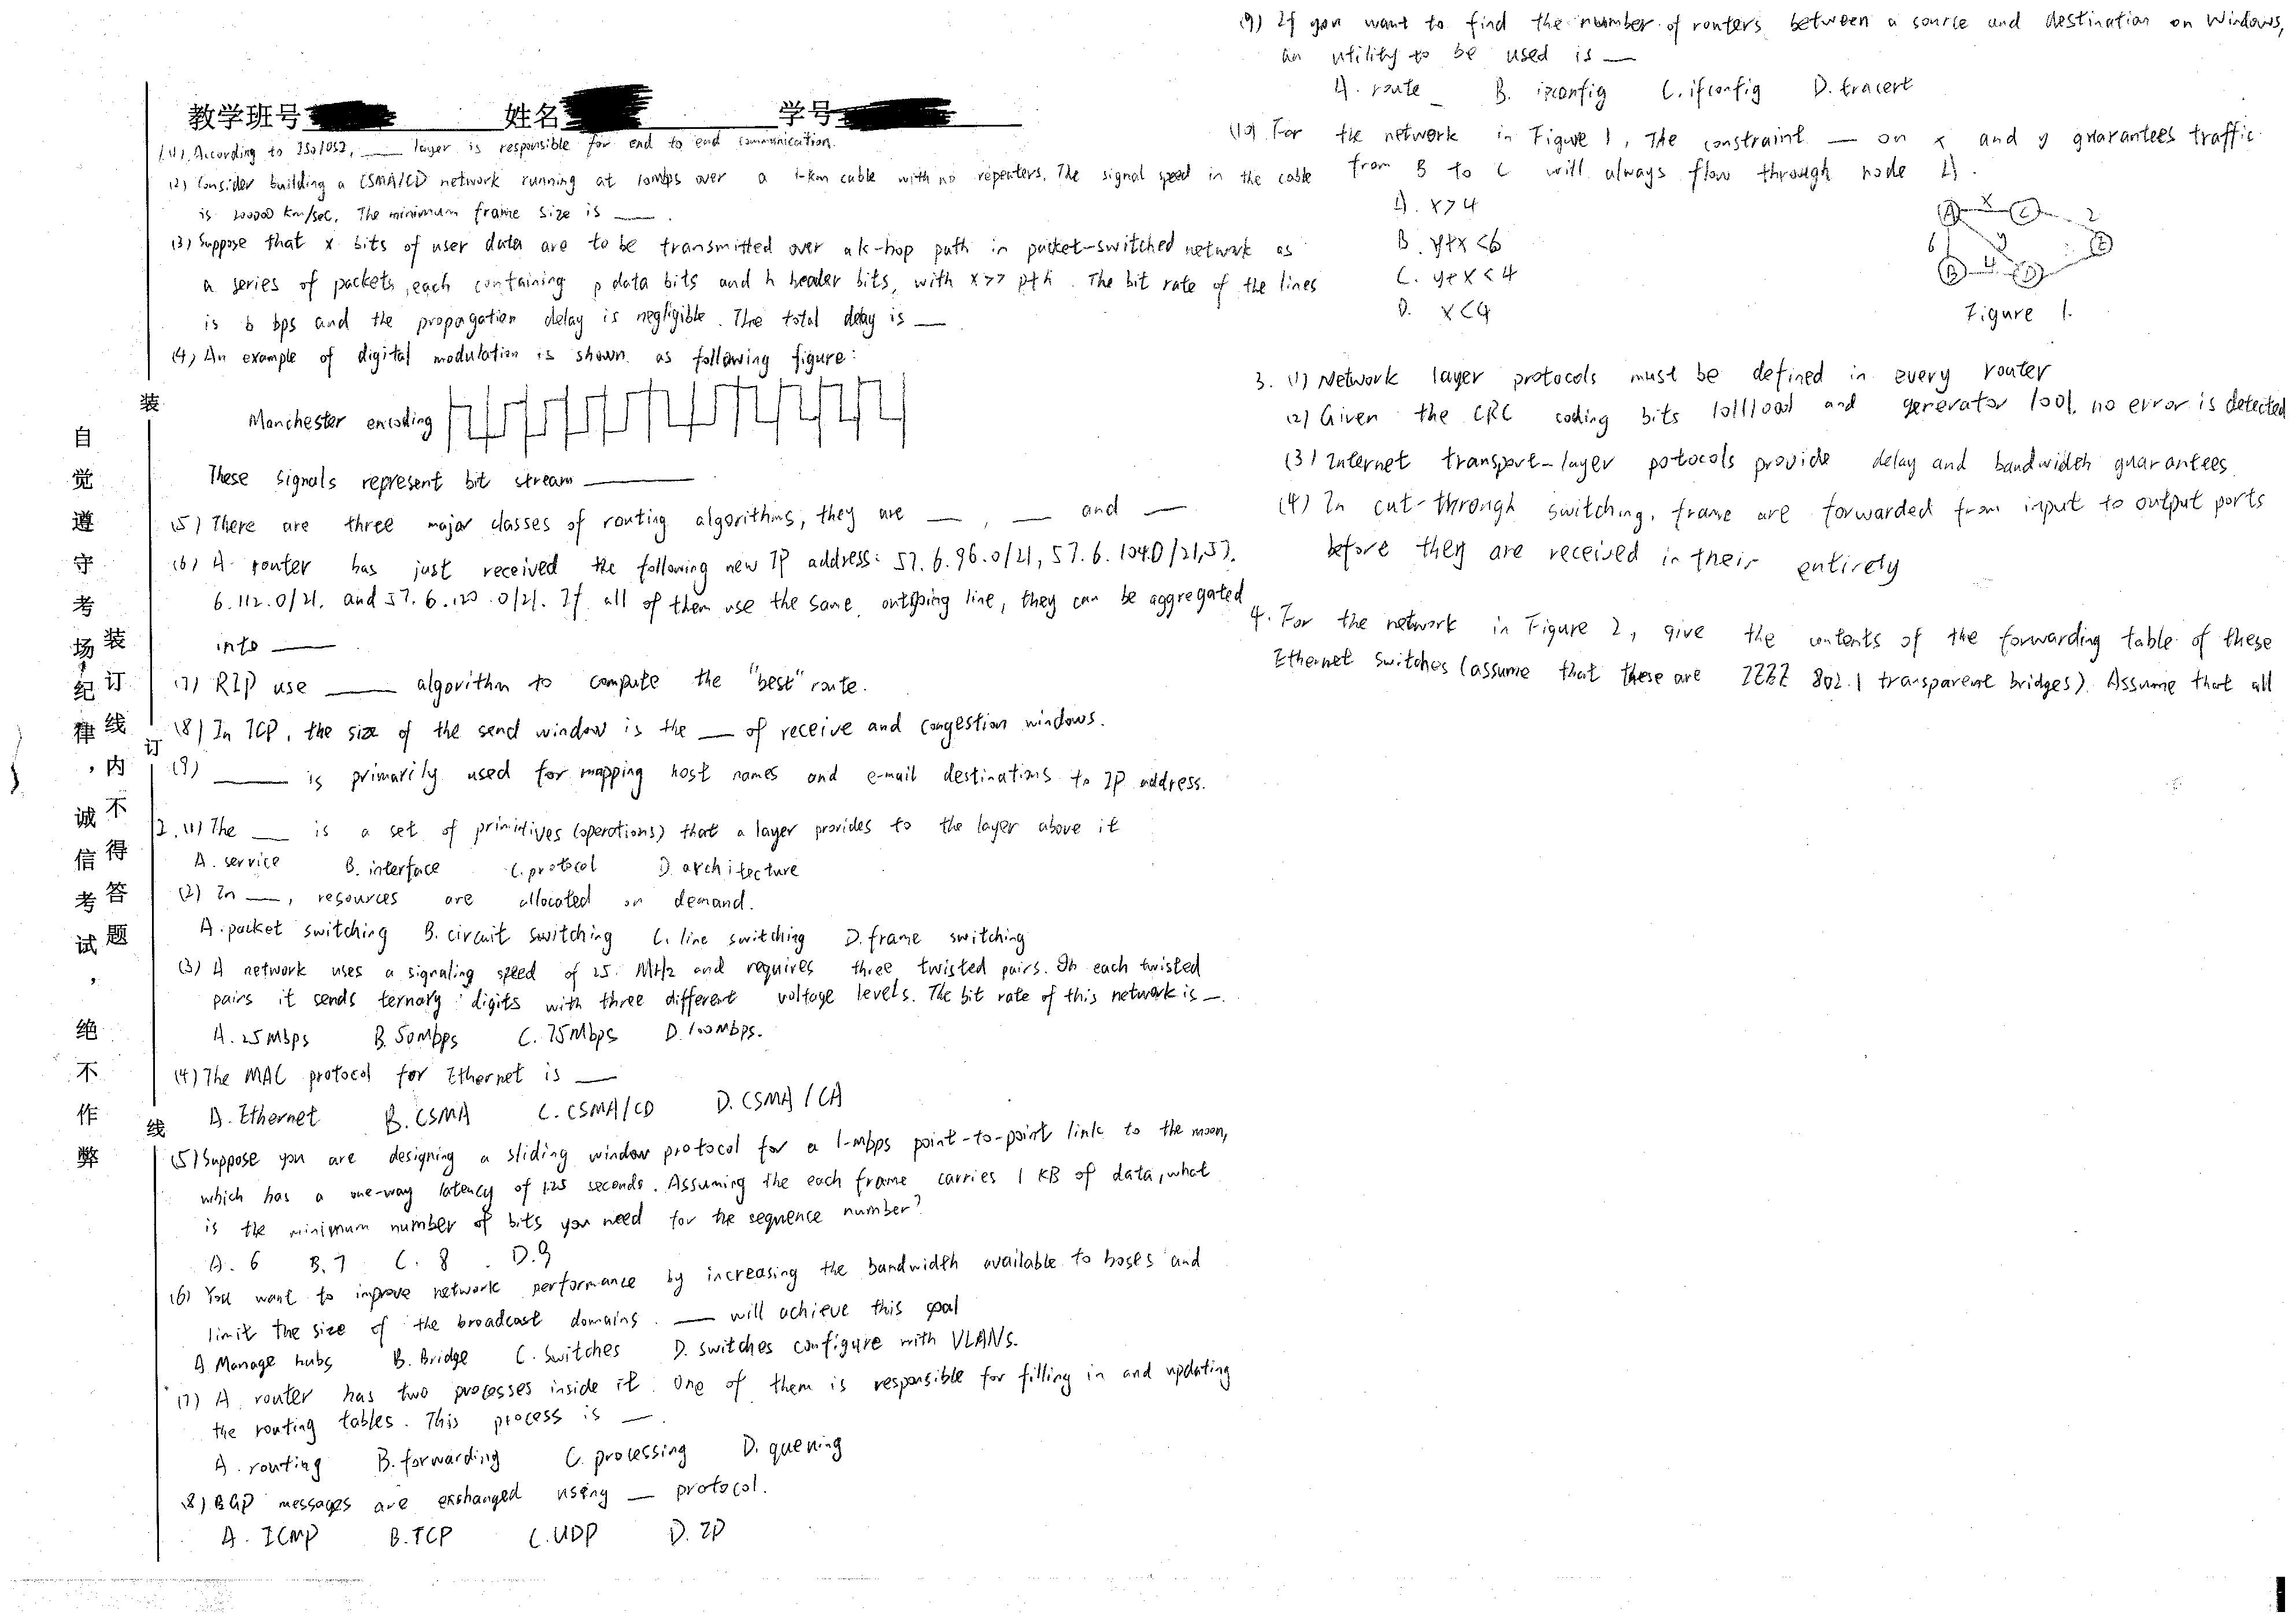 教学班号 姓名 学号
1.(1). According to ISO/OSI, ___ layer is responsible for end to end communication.
(2) Consider building a CSMA/CD network running at 10mbps over a 1-km cable with no repeaters. The signal speed in the cable
is 200000 km/sec. The minimum frame size is ___.
(3) Suppose that x bits of user data are to be transmitted over a k-hop path in packet-switched network as
a series of packets, each containing p data bits and h header bits, with x>>p+h. The bit rate of the lines
is b bps and the propagation delay is negligible. The total delay is ___.
(4) An example of digital modulation is shown as following figure:
Manchester encoding
These signals represent bit stream ___
(5) There are three major classes of routing algorithms, they are ___, ___ and ___
(6) A router has just received the following new IP address: 57.6.96.0/21, 57.6.104.0/21, 57.
6.112.0/21. and 57.6.120.0/21. If all of them use the same outgoing line, they can be aggregated
into ___
(7) RIP use ___ algorithm to compute the "best" route.
(8) In TCP, the size of the send window is the ___ of receive and congestion windows.
(9) ___ is primarily used for mapping host names and e-mail destinations to IP address.
2.(1) The ___ is a set of primitives (operations) that a layer provides to the layer above it
A. service B. interface C. protocol D. architecture
(2) In ___, resources are allocated on demand.
A. packet switching B. circuit switching C. line switching D. frame switching
(3) A network uses a signaling speed of 25 MHz and requires three twisted pairs. In each twisted
pairs it sends ternary digits with three different voltage levels. The bit rate of this network is ___.
A. 25Mbps B. 50Mbps C. 75Mbps D. 100Mbps.
(4) The MAC protocol for Ethernet is ___
A. Ethernet B. CSMA C. CSMA/CD D. CSMA/CA
(5) Suppose you are designing a sliding window protocol for a 1-mbps point-to-point link to the moon,
which has a one-way latency of 1.25 seconds. Assuming the each frame carries 1 KB of data, what
is the minimum number of bits you need for the sequence number?
A. 6 B. 7 C. 8 D. 9
(6) You want to improve network performance by increasing the bandwidth available to hosts and
limit the size of the broadcast domains. ___ will achieve this goal
A Manage hubs B. Bridge C. Switches D. switches configure with VLANs.
(7) A router has two processes inside it. One of them is responsible for filling in and updating
the routing tables. This process is ___.
A. routing B. forwarding C. processing D. queuing
(8) BGP messages are exchanged using ___ protocol.
A. ICMP B. TCP C. UDP D. IP
(9) If you want to find the number of routers between a source and destination on Windows,
an utility to be used is ___
A. route B. ipconfig C. ifconfig D. tracert
(10) For the network in Figure 1, The constraint ___ on x and y guarantees traffic
from B to C will always flow through node A.
A. x>4
B. y+x<6
C. y+x<4
D. x<4
A x C 2
6 y E
B 4 D
Figure 1.
3. (1) Network layer protocols must be defined in every router
(2) Given the CRC coding bits and generator 1001, no error is detected
(3) Internet transport-layer potocols provide delay and bandwidth guarantees
(4) In cut-through switching, frame are forwarded from input to output ports
before they are received in their entirety
4. For the network in Figure 2, give the contents of the forwarding table of these
Ethernet switches (assume that these are IEEE 802.1 transparent bridges). Assume that all
自觉遵守考场纪律，诚信考试，绝不作弊
装订线内不得答题
装
订
线